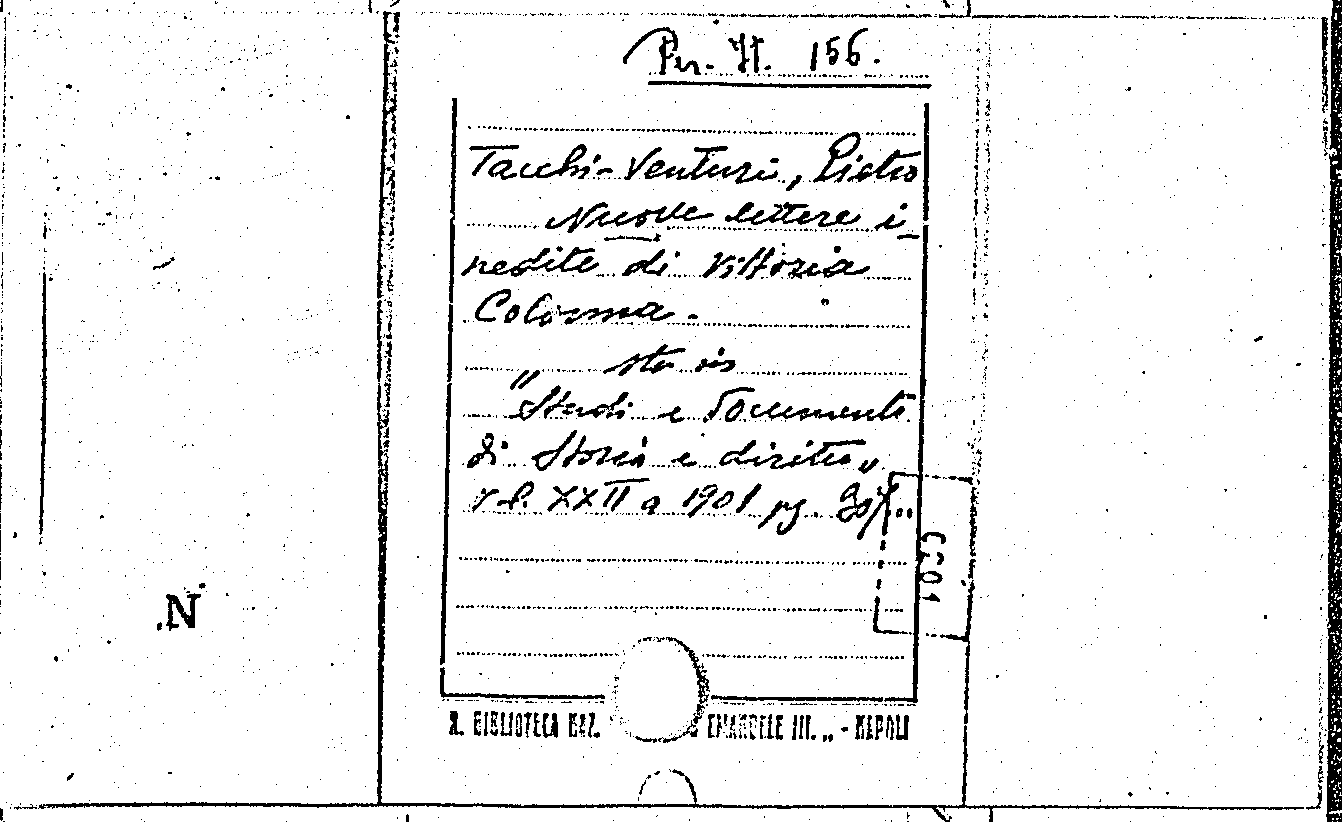 Per. It. 156.
Tacchi-Venturi, Pietro
Nuove lettere i-
nedite di Vittoria
Colonna.
sta in
"Studi e Documenti
di Storia e diritto"
vol. XXII a 1901 pg.
C201
N.
R. BIBLIOTECA NAZ. EMANUELE III. „ - NAPOLI